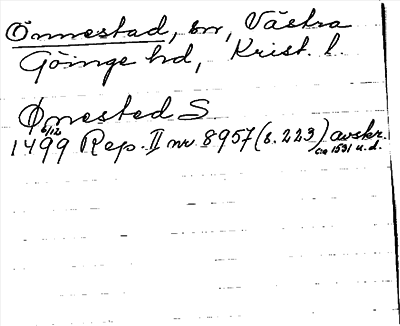 Önnestad, sn, Västra
Göinge hd, Krist. l.
Ønested S
6/12
1499 Rep. II nr 8957 (s. 223) avskr.
ca 1531 u.d.